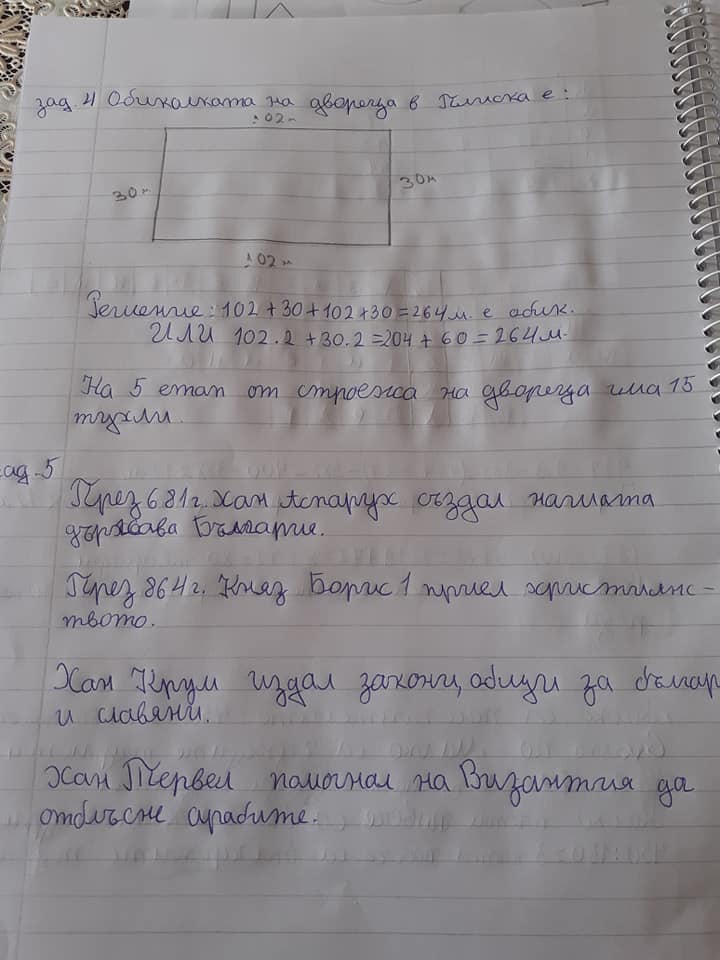 зад. 4 Обиколката на двореца в Плиска е:
102 м
30 м
30м
102 м
Решение: 102 + 30 + 102 + 30 = 264 м. е обик.
ИЛИ 102.2 + 30.2 = 204 + 60 = 264 м.
На 5 етап от строежа на двореца има 15
тухли.
ад. 5
През 681 г. Хан Аспарух създал нашата
държава България.
През 864 г. Княз Борис 1 приел християнс-
твото.
Хан Крум издал закони, общи за българ
и славяни.
Хан Тервел помогнал на Византия да
отблъсне арабите.